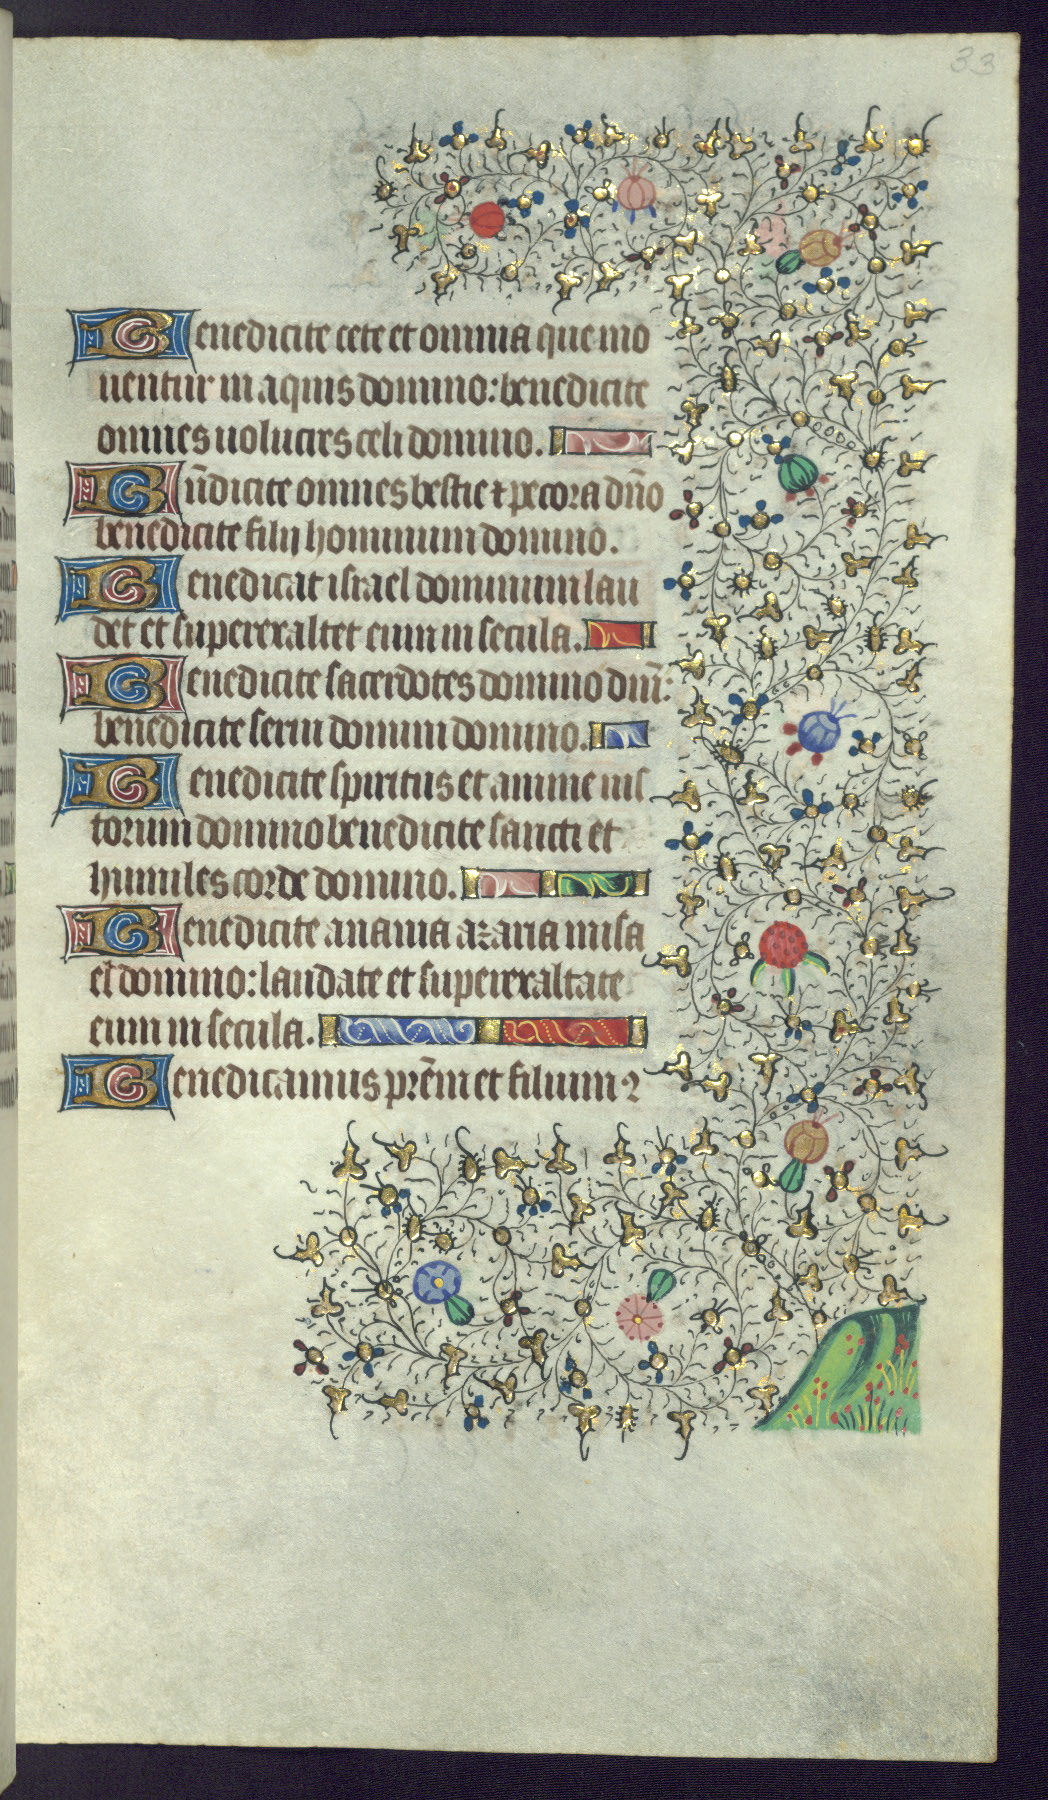 33
Benedicite cete et omnia que mo
uentur in aquis domino: benedicite
omnes uolucres celi domino.
Bn̄dicite omnes bestie ⁊ pecora dn̄o
benedicite filij hominum domino.
Benedicat israel dominum lau
det et superexaltet eum in secula.
Benedicite sacerdotes domino dn̄i:
benedicite serui domini domino.
Benedicite spiritus et anime ius
torum domino benedicite sancti et
humiles corde domino.
Benedicite anania azaria misa
el domino: laudate et superexaltate
eum in secula.
Benedicamus pr̄em et filium ⁊